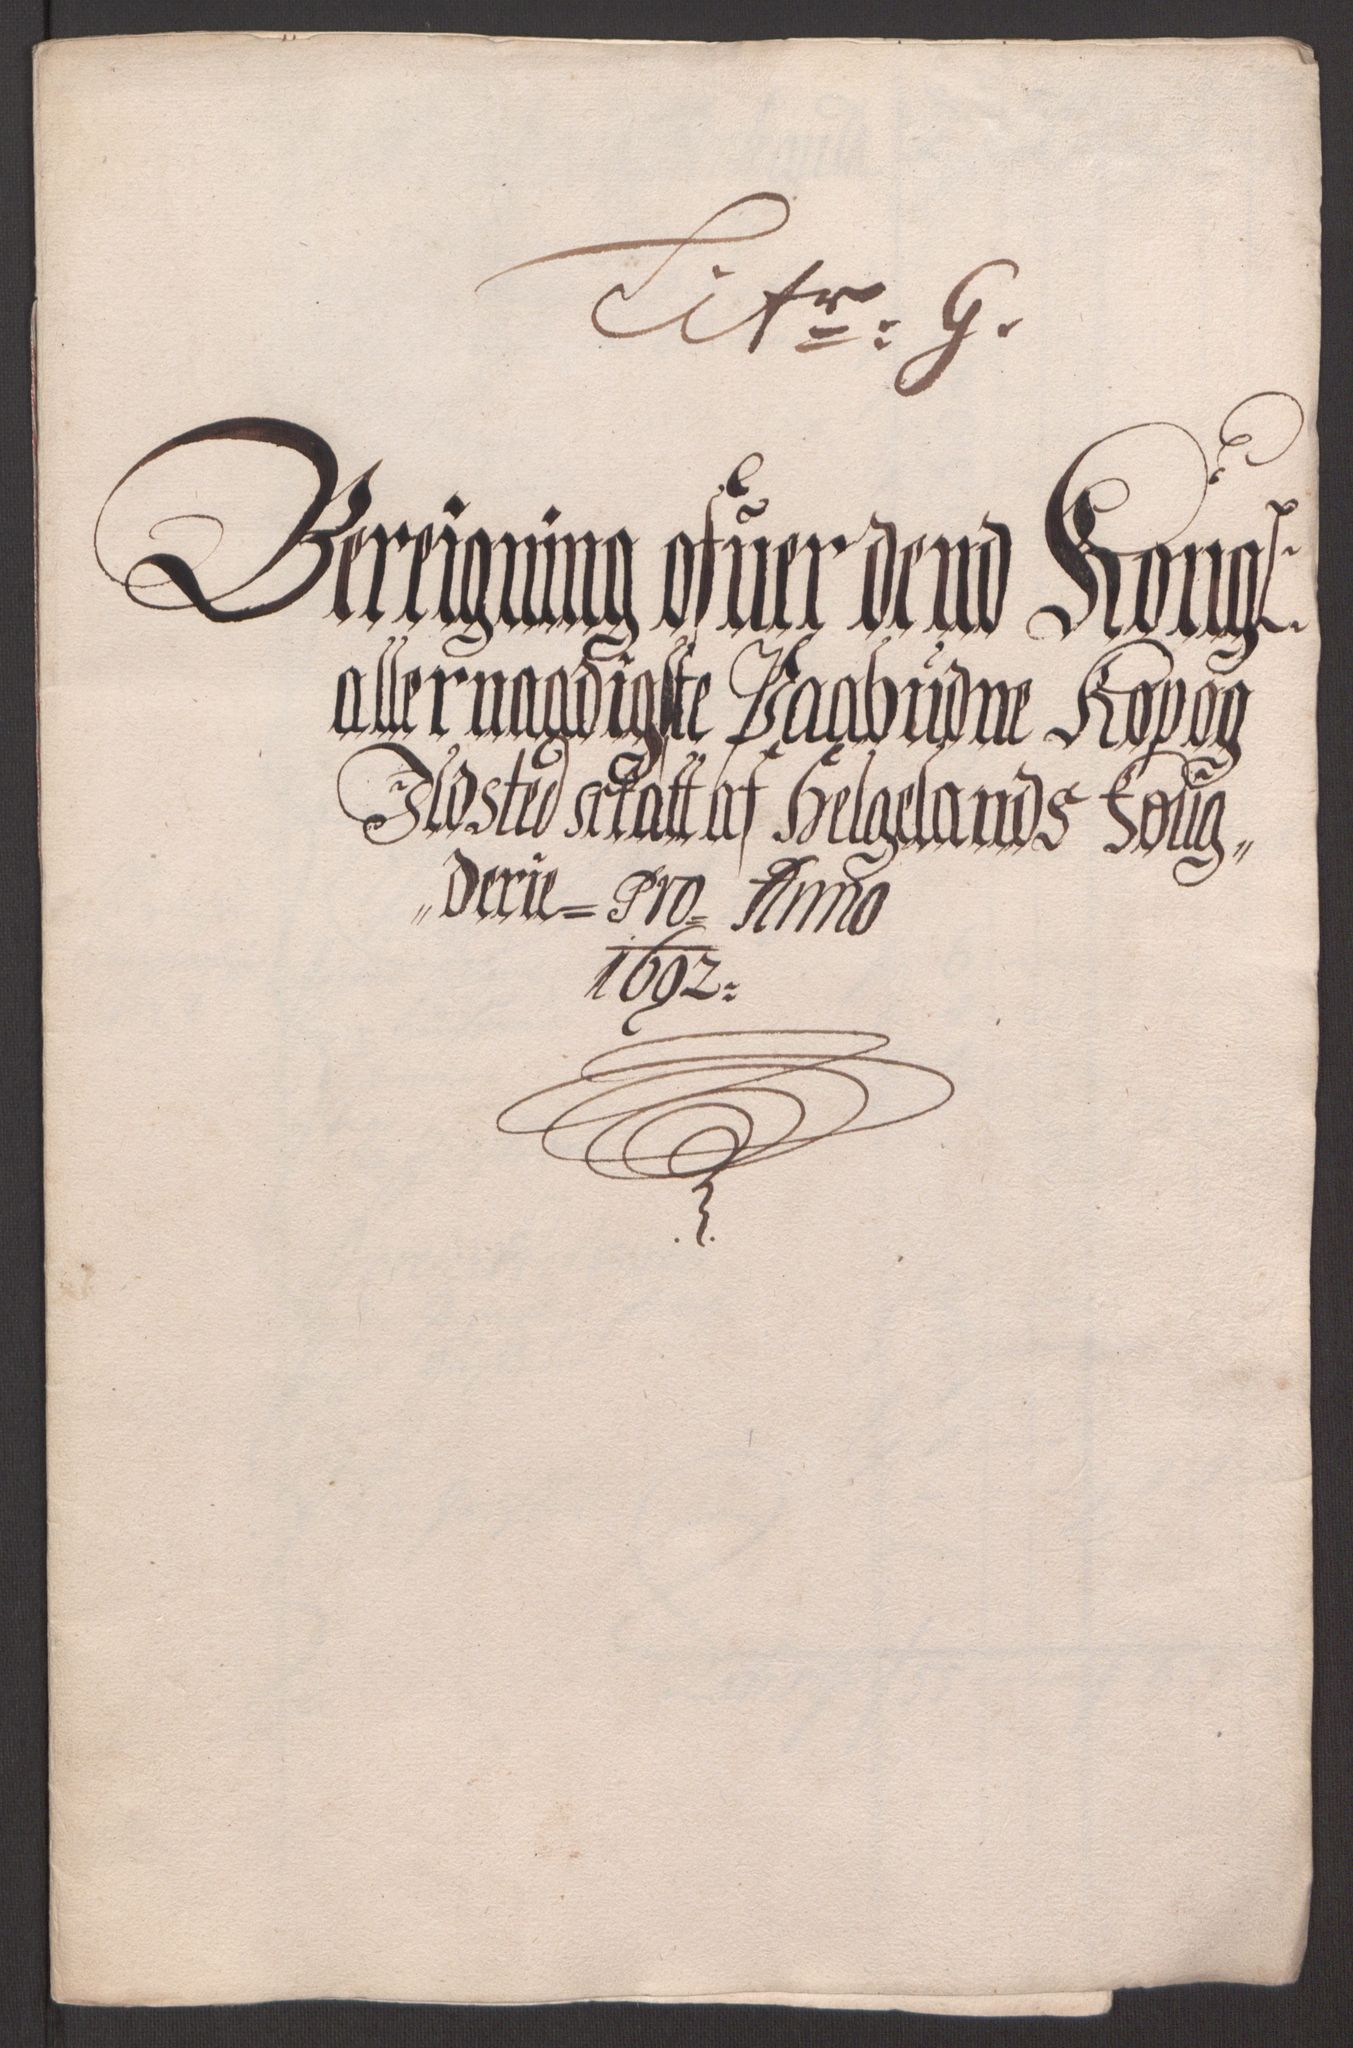 Litr: G.
Bereigning ofuer dend Kongl:
allernaadigste Paabudne Kopog
Ildsted schatt af Helgelands Foug„
„derie= Pro= Anno
1692: